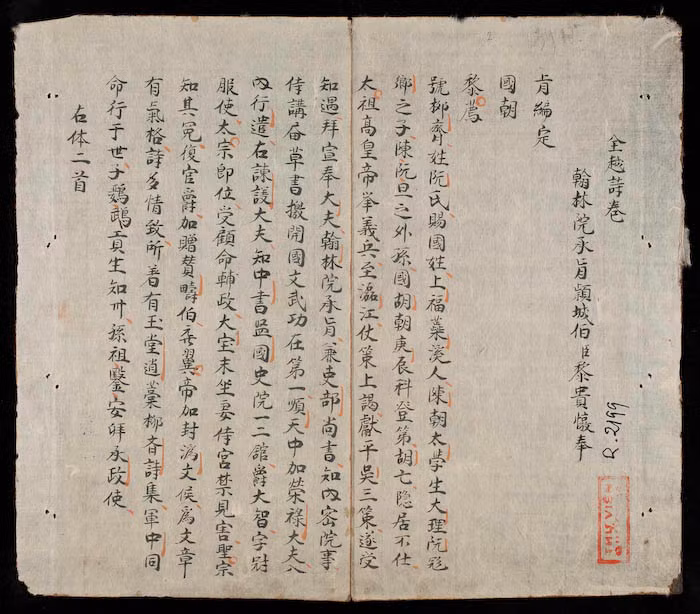 全越詩卷
翰林院承旨頴城伯臣黎貴惇奉
R.2199
旨編定
國朝
黎廌
號抑齊姓阮氏賜國姓上福蘂溪人陳朝太学生大理阮飛
卿之子陳阮旦之外孫國胡朝庚辰科登第胡亡隐居不仕
太祖高皇帝举義兵至江仗策上謁獻平吳三策遂受
知遇拜宣奉大夫翰林院承旨兼吏部尚書知內密院事
侍講草書檄開國文武功在第一順天中加荣祿大夫入
內行遣右諫議大夫知中書监國史院一二舘爵大智字封
服使太宗即位受顧命輔政大宝末坐妾侍宮禁見害聖宗
知其冤復官爵加贈賛疇伯翼帝加封濟文侯爲文章
有氣格詩多情致所着有玉堂逍藁柳齊詩集軍中同
命行于世子鸚鵡生知州孫祖鑒安拜承政使
右体二首